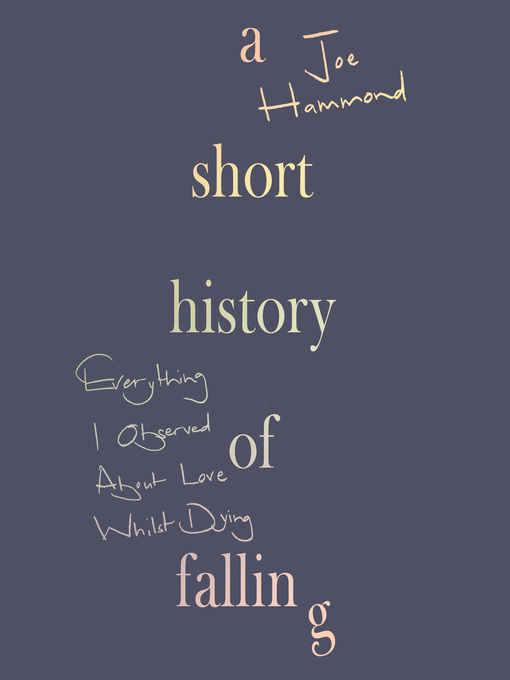 a
Joe
Hammond
short
history
Everything
I Observed
of
About Love
Whilst Dying
falling